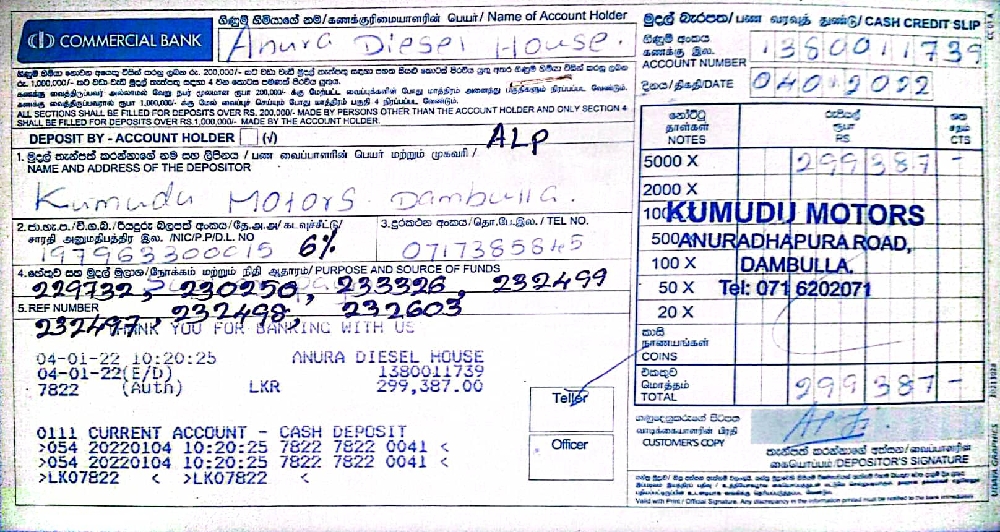 COMMERCIAL BANK
ගිණුම් හිමියාගේ නම/கணக்குரிமையாளரின் பெயர்/ Name of Account Holder
Anura Diesel House.
මුදල් බැරපත/பண வரவுத் துண்டு/CASH CREDIT SLIP
ගිණුම් අංකය
கணக்கு இல.
ACCOUNT NUMBER
1380011739
දිනය/திகதி/DATE
04012022
ALL SECTIONS SHALL BE FILLED FOR DEPOSITS OVER RS. 200,000/- MADE BY PERSONS OTHER THAN THE ACCOUNT HOLDER AND ONLY SECTION 4
SHALL BE FILLED FOR DEPOSITS OVER RS.1,000,000/- MADE BY THE ACCOUNT HOLDER.
DEPOSIT BY - ACCOUNT HOLDER (√)
ALP
1. මුදල් තැන්පත් කරන්නාගේ නම සහ ලිපිනය / பண வைப்பாளரின் பெயர் மற்றும் முகவரி /
NAME AND ADDRESS OF THE DEPOSITOR
Kumudu Motors. Dambulla.
2. /NIC/P.P/D.L. NO
197963300015
6%
3. දුරකථන අංකය/தொ.பே.இல./ TEL NO.
0717385845
4. හේතුව සහ මුදල් මූලාශ්‍ර/நோக்கம் மற்றும் நிதி ஆதாரம்/ PURPOSE AND SOURCE OF FUNDS
229732, 230250, 233326, 232499
5. REF NUMBER
232497, 232498, 232603
THANK YOU FOR BANKING WITH US
04-01-22 10:20:25 ANURA DIESEL HOUSE
04-01-22(E/D) 1380011739
7822 (Auth) LKR 299,387.00
0111 CURRENT ACCOUNT - CASH DEPOSIT
>054 20220104 10:20:25 7822 7822 0041 <
>054 20220104 10:20:25 7822 7822 0041 <
>LK07822 < >LK07822 <
Teller
Officer
නෝට්ටු රුපියල් ශත
தாள்கள் ரூபா சதம்
NOTES RS. CTS
5000 X 299387 -
2000 X
KUMUDU MOTORS
500 X ANURADHAPURA ROAD,
100 X DAMBULLA.
50 X Tel: 071 6202071
20 X
කාසි
நாணயங்கள்
COINS
එකතුව
மொத்தம்
TOTAL 299387 -
ගනුදෙනුකරුගේ පිටපත
வாடிக்கையாளரின் பிரதி
CUSTOMER'S COPY
තැන්පත් කරන්නාගේ අත්සන/வைப்பாளரின்
கையொப்பம்/DEPOSITOR'S SIGNATURE
Valid with Print / Official Signature. Any discrepancy in the information printed must be notified to the bank immediately